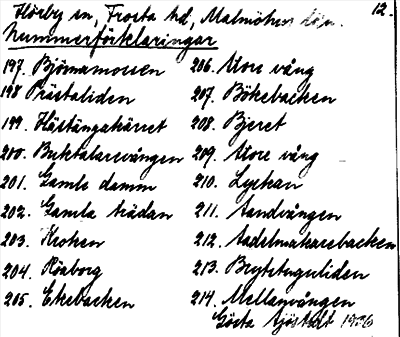 Hörby sn, Frosta hd, Malmöhus län. 12.
Nummerförklaringar
197. Björnamossen
198 Prästaliden
199. Hästängakärret
200. Buktalarevången
201. Gamla damm
202. Gamla trädan
203. Kroken
204. Röaborg
205. Ekebacken
206. Store vång
207. Bökebacken
208. Bjeret
209. Store vång
210. Lyckan
211. Sandvången
212. Sadelmakarebacken
213. Brytestuguliden
214. Mellanvången
Gösta Sjöstedt 1926